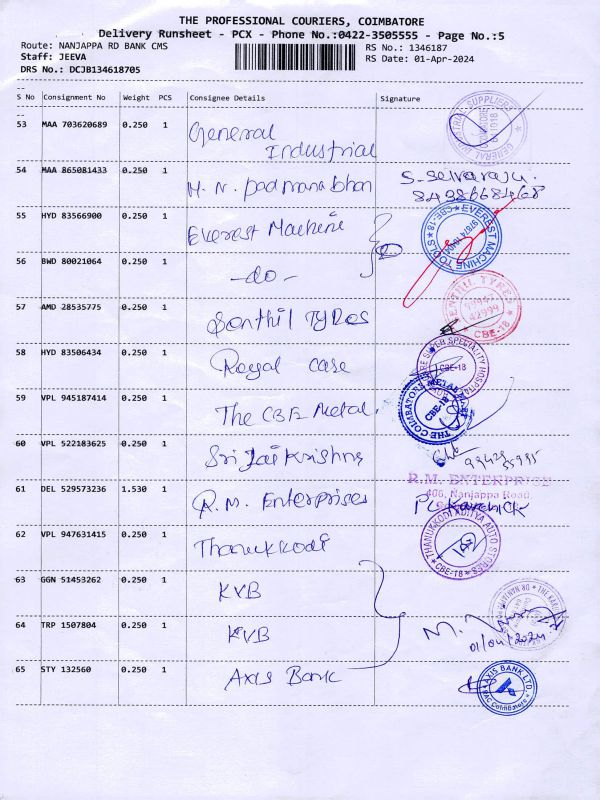 THE PROFESSIONAL COURIERS, COIMBATORE
Delivery Runsheet - PCX - Phone No.:0422-3505555 - Page No.:5
Route: NANJAPPA RD BANK CMS RS No.: 1346187
Staff: JEEVA RS Date: 01-Apr-2024
DRS No.: DCJB134618705
S No Consignment No Weight PCS Consignee Details Signature
53 MAA 703620689 0.250 1 General Industrial
54 MAA 865081433 0.250 1 H. N. padmanabhan S. Selvaraju.
55 HYD 83566900 0.250 1 Everest Machine
EVEREST MACHINE TOOLS CBE-18
56 BWD 80021064 0.250 1 -do-
57 AMD 28535775 0.250 1 Senthil Tyres
SENTHIL TYRES 42999 CBE-18
58 HYD 83506434 0.250 1 Royal Case
SUPER SPECIALITY HOSPITAL CBE-18
59 VPL 945187414 0.250 1 The CBE Metal
THE COIMBATORE METAL CBE-18
60 VPL 522183625 0.250 1 Sri Jai Krishna
61 DEL 529573236 1.530 1 R.M. Enterprises
R.M. ENTERPRISE
406, Nanjappa Road
62 VPL 947631415 0.250 1 Thanukkodi
THANUKKODI ADITYA AUTO STORES CBE-18
63 GGN 51453262 0.250 1 KVB
64 TRP 1507804 0.250 1 KVB M. 01/04/2024
65 STY 132560 0.250 1 Axis Bank
AXIS BANK LTD. Coimbatore